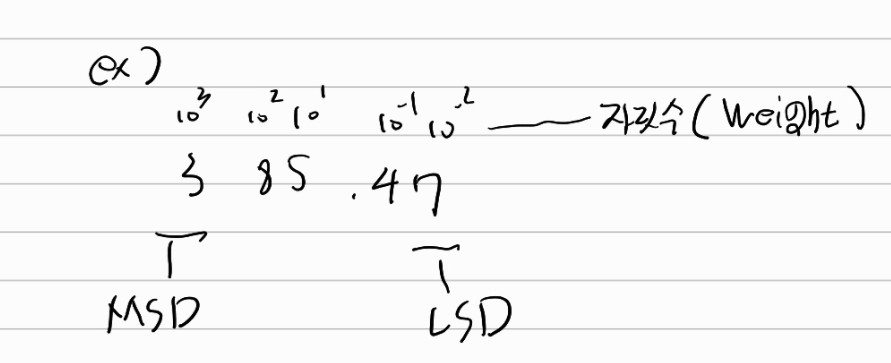 ex)
10³ 10² 10¹ 10⁻¹ 10⁻² — 자릿수(Weight)
3 85 .47
MSD LSD